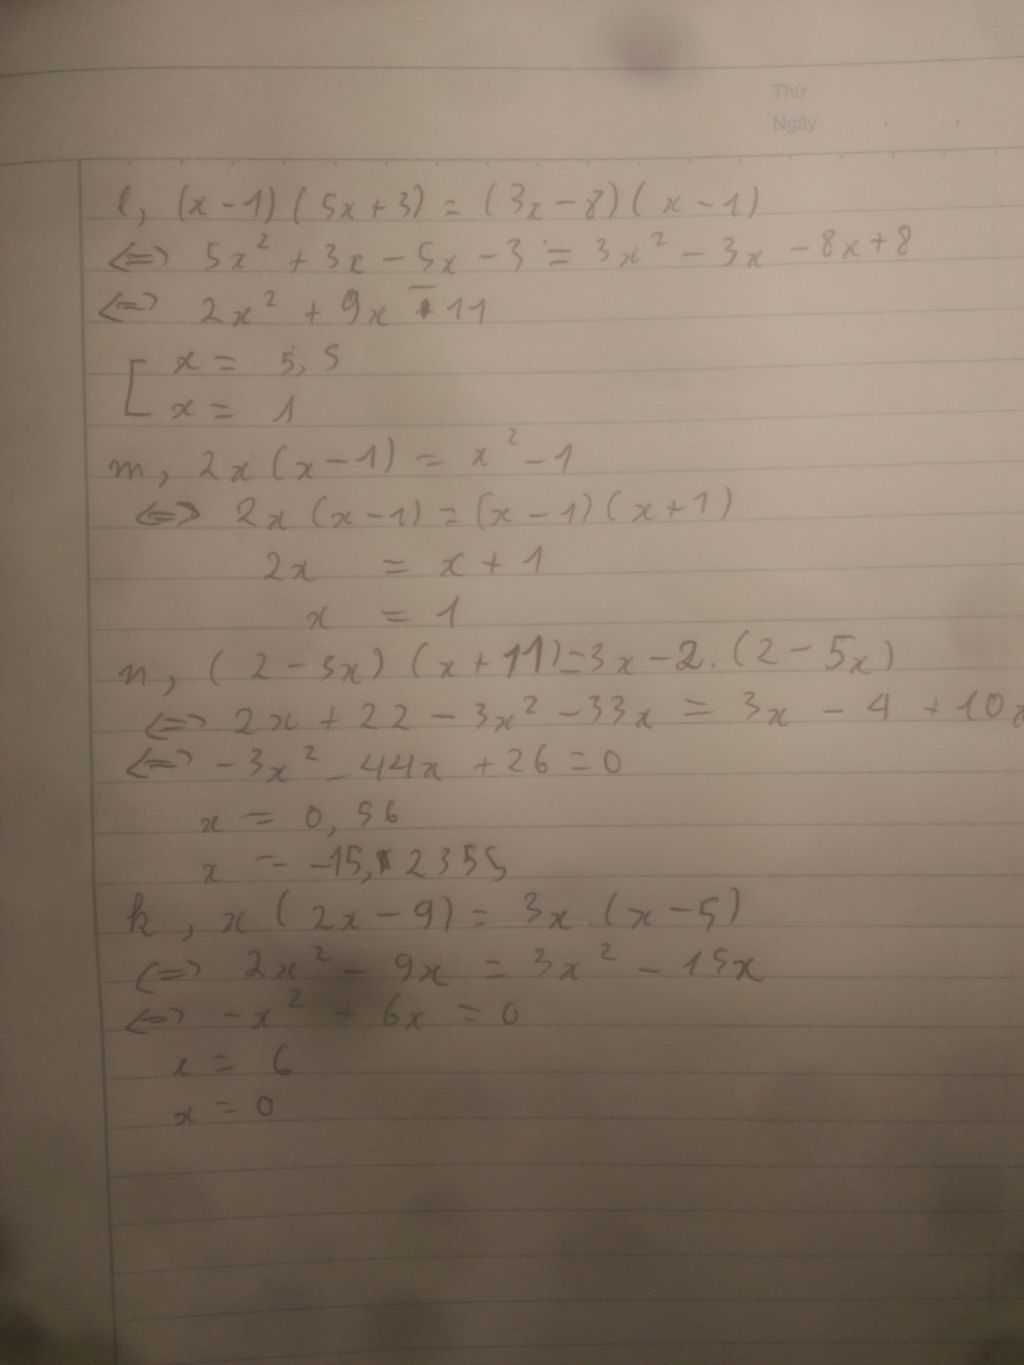 Thứ
Ngày
l, (x - 1) ( 5x + 3) = (3x - 8) ( x - 1)
<=> 5x² + 3x - 5x - 3 = 3x² - 3x - 8x + 8
<=> 2x² + 9x - 11
x = 5,5
x = 1
m, 2x (x - 1) = x² - 1
<=> 2x (x - 1) = (x - 1) (x + 1)
2x = x + 1
x = 1
n, ( 2 - 3x) (x + 11) = 3x - 2. (2 - 5x)
<=> 2x + 22 - 3x² - 33x = 3x - 4 + 10x
<=> - 3x² - 44x + 26 = 0
x = 0,56
x = -15,2355
k, x ( 2x - 9) = 3x. (x - 5)
<=> 2x² - 9x = 3x² - 15x
<=> - x² + 6x = 0
x = 6
x = 0